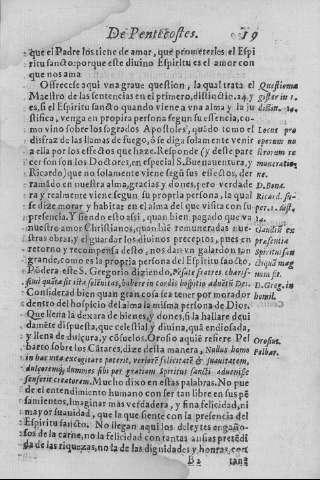 De Pentecostes. 19
que el Padre los tiene de amar, que prometerles el Espi
ritu sancto: porque este diuino Espiritu es el amor con
que nos ama
Ofrecese aqui vna graue question, la qual trata el
Maestro de las sentencias en el primero, distinct. 14. y
es, si el Espiritu sancto quando viene a vna alma y la ju
stifica, venga en propria persona segun su essencia, co-
mo vino sobre los sagrados Apostoles, quãdo tomo el
disfraz de las llamas de fuego, ò se diga solamente venir
a ella por los effectos que haze. Responde (y desse pare
cer son son los Doctores, en especial S. Buenauentura, y
Ricardo) que no solamente viene segũ sus effectos, der
ramãdo en nuestra alma, gracias y dones, pero verdade
ra y realmente viene segun su propria persona, la qual
se dize morar y habitar en el alma del que visita con su
presencia. Y siendo esto assi, quan bien pagado que va
nuestro amor Christianos, quan biẽ remuneradas nue-
stras obras, y el guardar los diuinos preceptos, pues en
retorno y recompensa desto, nos dan vn galardon tan
grande, como es la propria persona del Espiritu sancto,
Põdera este S. Gregorio diziendo, Pensate fratres charis-
simi quãta sit ista solẽnitas, habere in cordis hospitio aduẽtũ Dei.
Considerad bien quan gran cosa sea tener por morador
dentro del hospicio del alma la misma persona de Dios.
Que llena la dexara de bienes, y dones, si la hallare deui
damẽte dispuesta, que celestial y diuina, quã endiosada,
y llena de dulçura, y cõsuelos. Orosio aquiẽ refiere Pel
barto sobre los Cãtares, dize desta manera, Nullus homo
in hac vita excogitare poterit, verierẽ felicitatẽ & suauitatem,
dulcoremq; dummes sibi per gratiam Spiritus sancti aduenisse
senserit creatorem. Mucho dixo en estas palabras. No pue
de el entendimiento humano con ser tan libre en sus pẽ
samientos, imaginar mas verdadera, y fina felicidad, ni
mayor suauidad, que la que siente con la presencia del
Espiritu sancto. No llegan aqui los deleytes engaño-
sos de la carne, no la felicidad con tantas ansias pretẽdi
da de las riquezas, no la de las dignidades y honras, con
B 2 tan
Questiona
gister in 1.
distin. 14.
Locus pro
eorum re
muneratio
ne.
D. Bona.
Ricard. su-
per. 1. dist.
14.
Gaudiũ ex
presentia
Spiritussan
cti quã mag
num sit.
D. Greg. in
homil.
Orosius.
Pelbar.